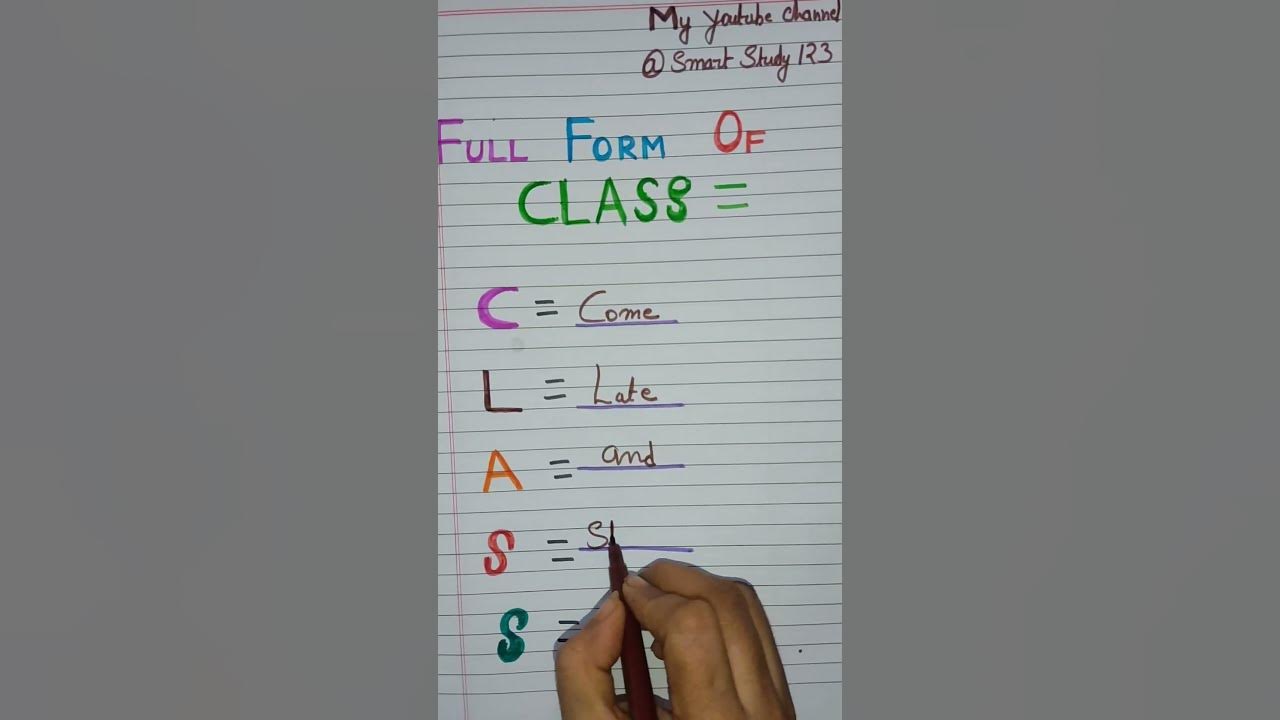 My Youtube Channel
@ Smart Study 123
FULL FORM OF
CLASS =
C = Come
L = Late
A = and
S =
S =